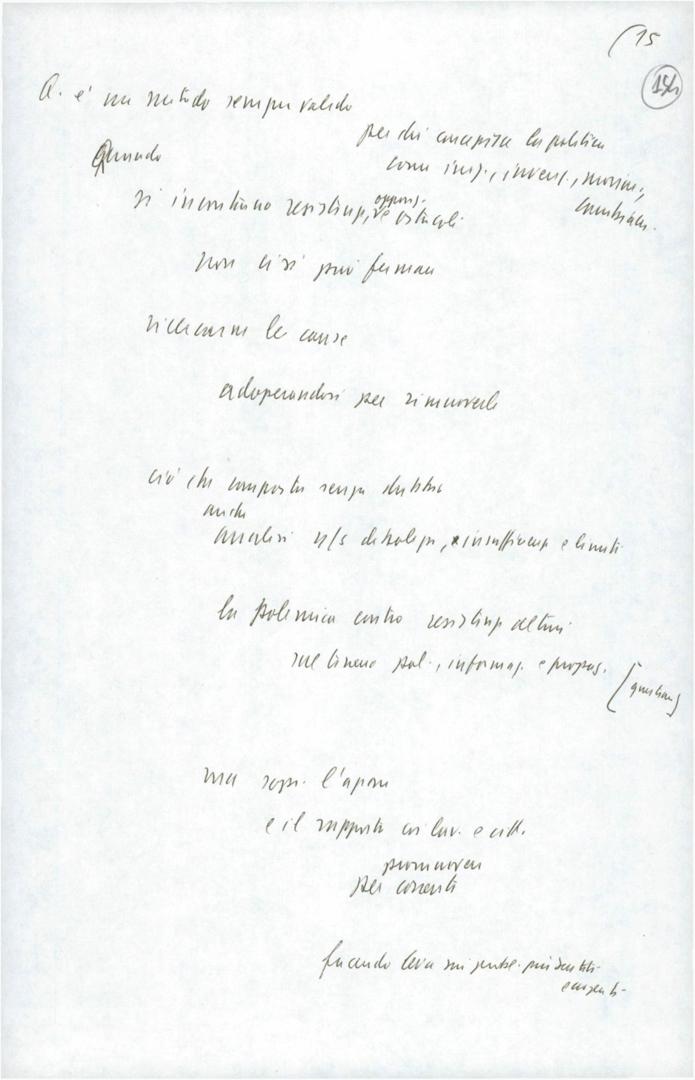 (15
Q. è un metodo sempre valido
per chi concepisce la politica
Quando
come iniz., invenz.,
si incontrano resistenz, oppos. e ostacoli
non ci si può fermare
ricercarne le cause
adoperandosi per rimuoverle
ciò che comporta senza dubbio
anche
analisi n/s debolezze, insufficienze e limiti
la polemica contro resistenz altrui
sul piano pol., informaz. e propag.
[questione]
ma sopr. l'azione
e il rapporto coi lav. e citt.
promuovere
per
facendo leva sui probl. più sentiti
e urgenti